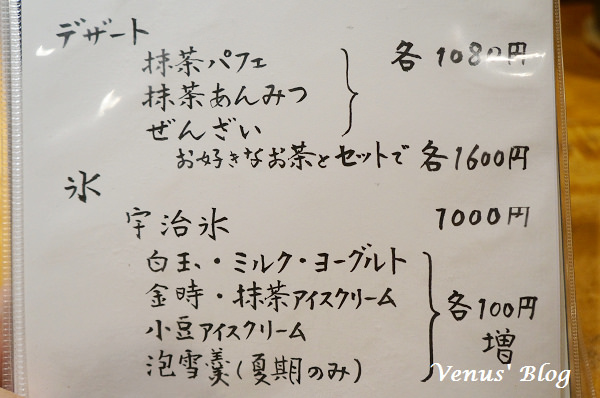 デザート
抹茶パフェ 各1080円
抹茶あんみつ
ぜんざい
お好きなお茶とセットで 各1600円
氷
宇治氷 1000円
白玉・ミルク・ヨーグルト
金時・抹茶アイスクリーム 各100円
小豆アイスクリーム 増
泡雪羹(夏期のみ)
Venus' Blog